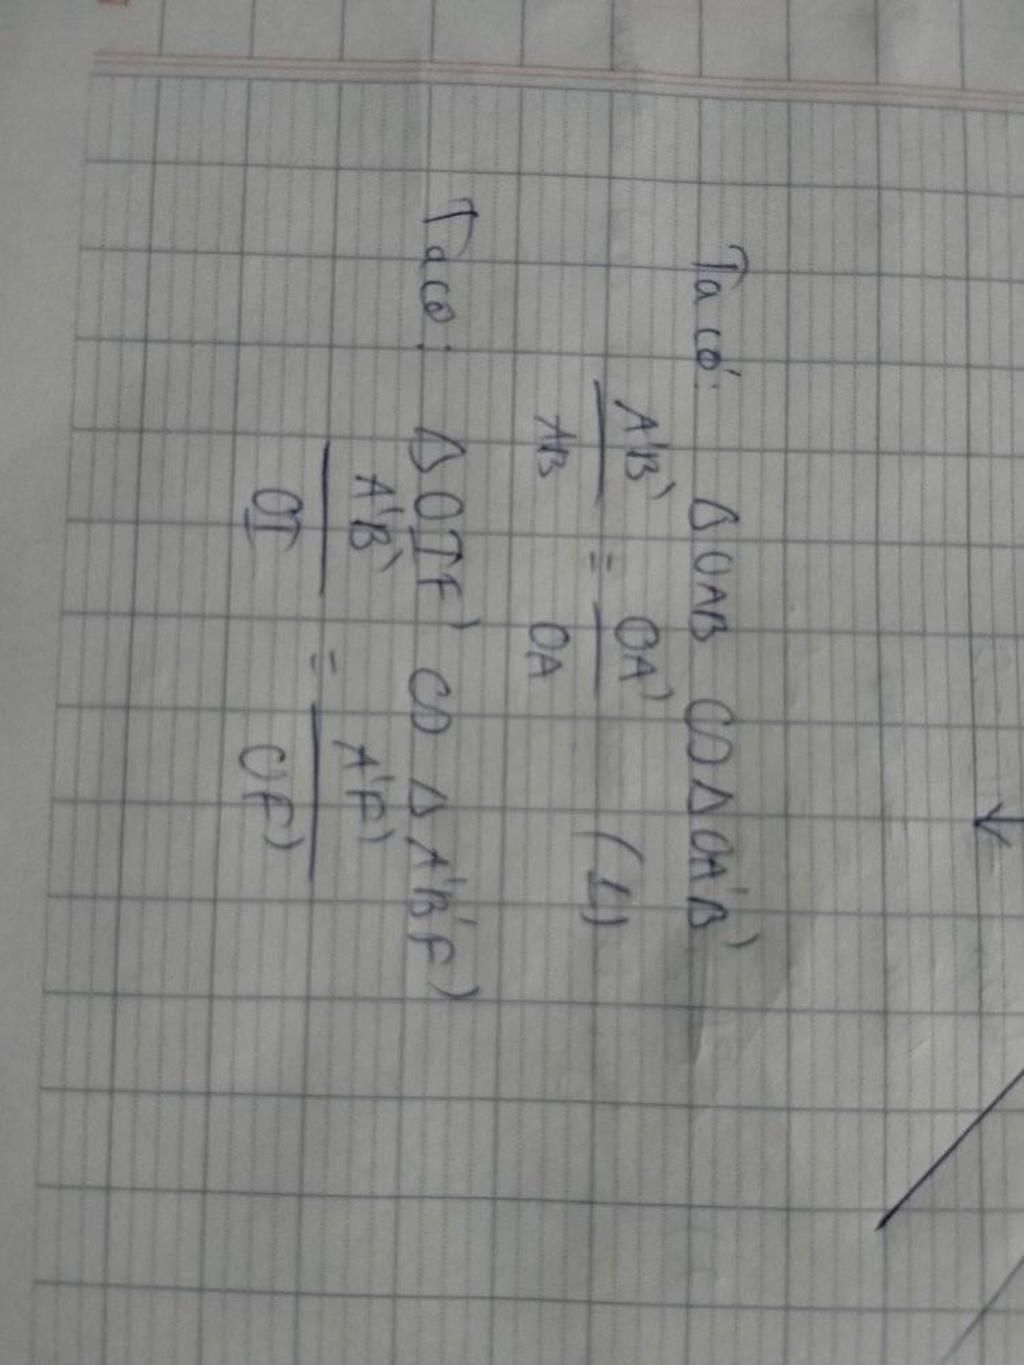 Ta có: Δ OAB ∽ Δ OA'B'
A'B'/AB = OA'/OA (1)
Ta có: Δ OIF' ∽ Δ A'B'F'
A'B'/OI = A'F'/OF'